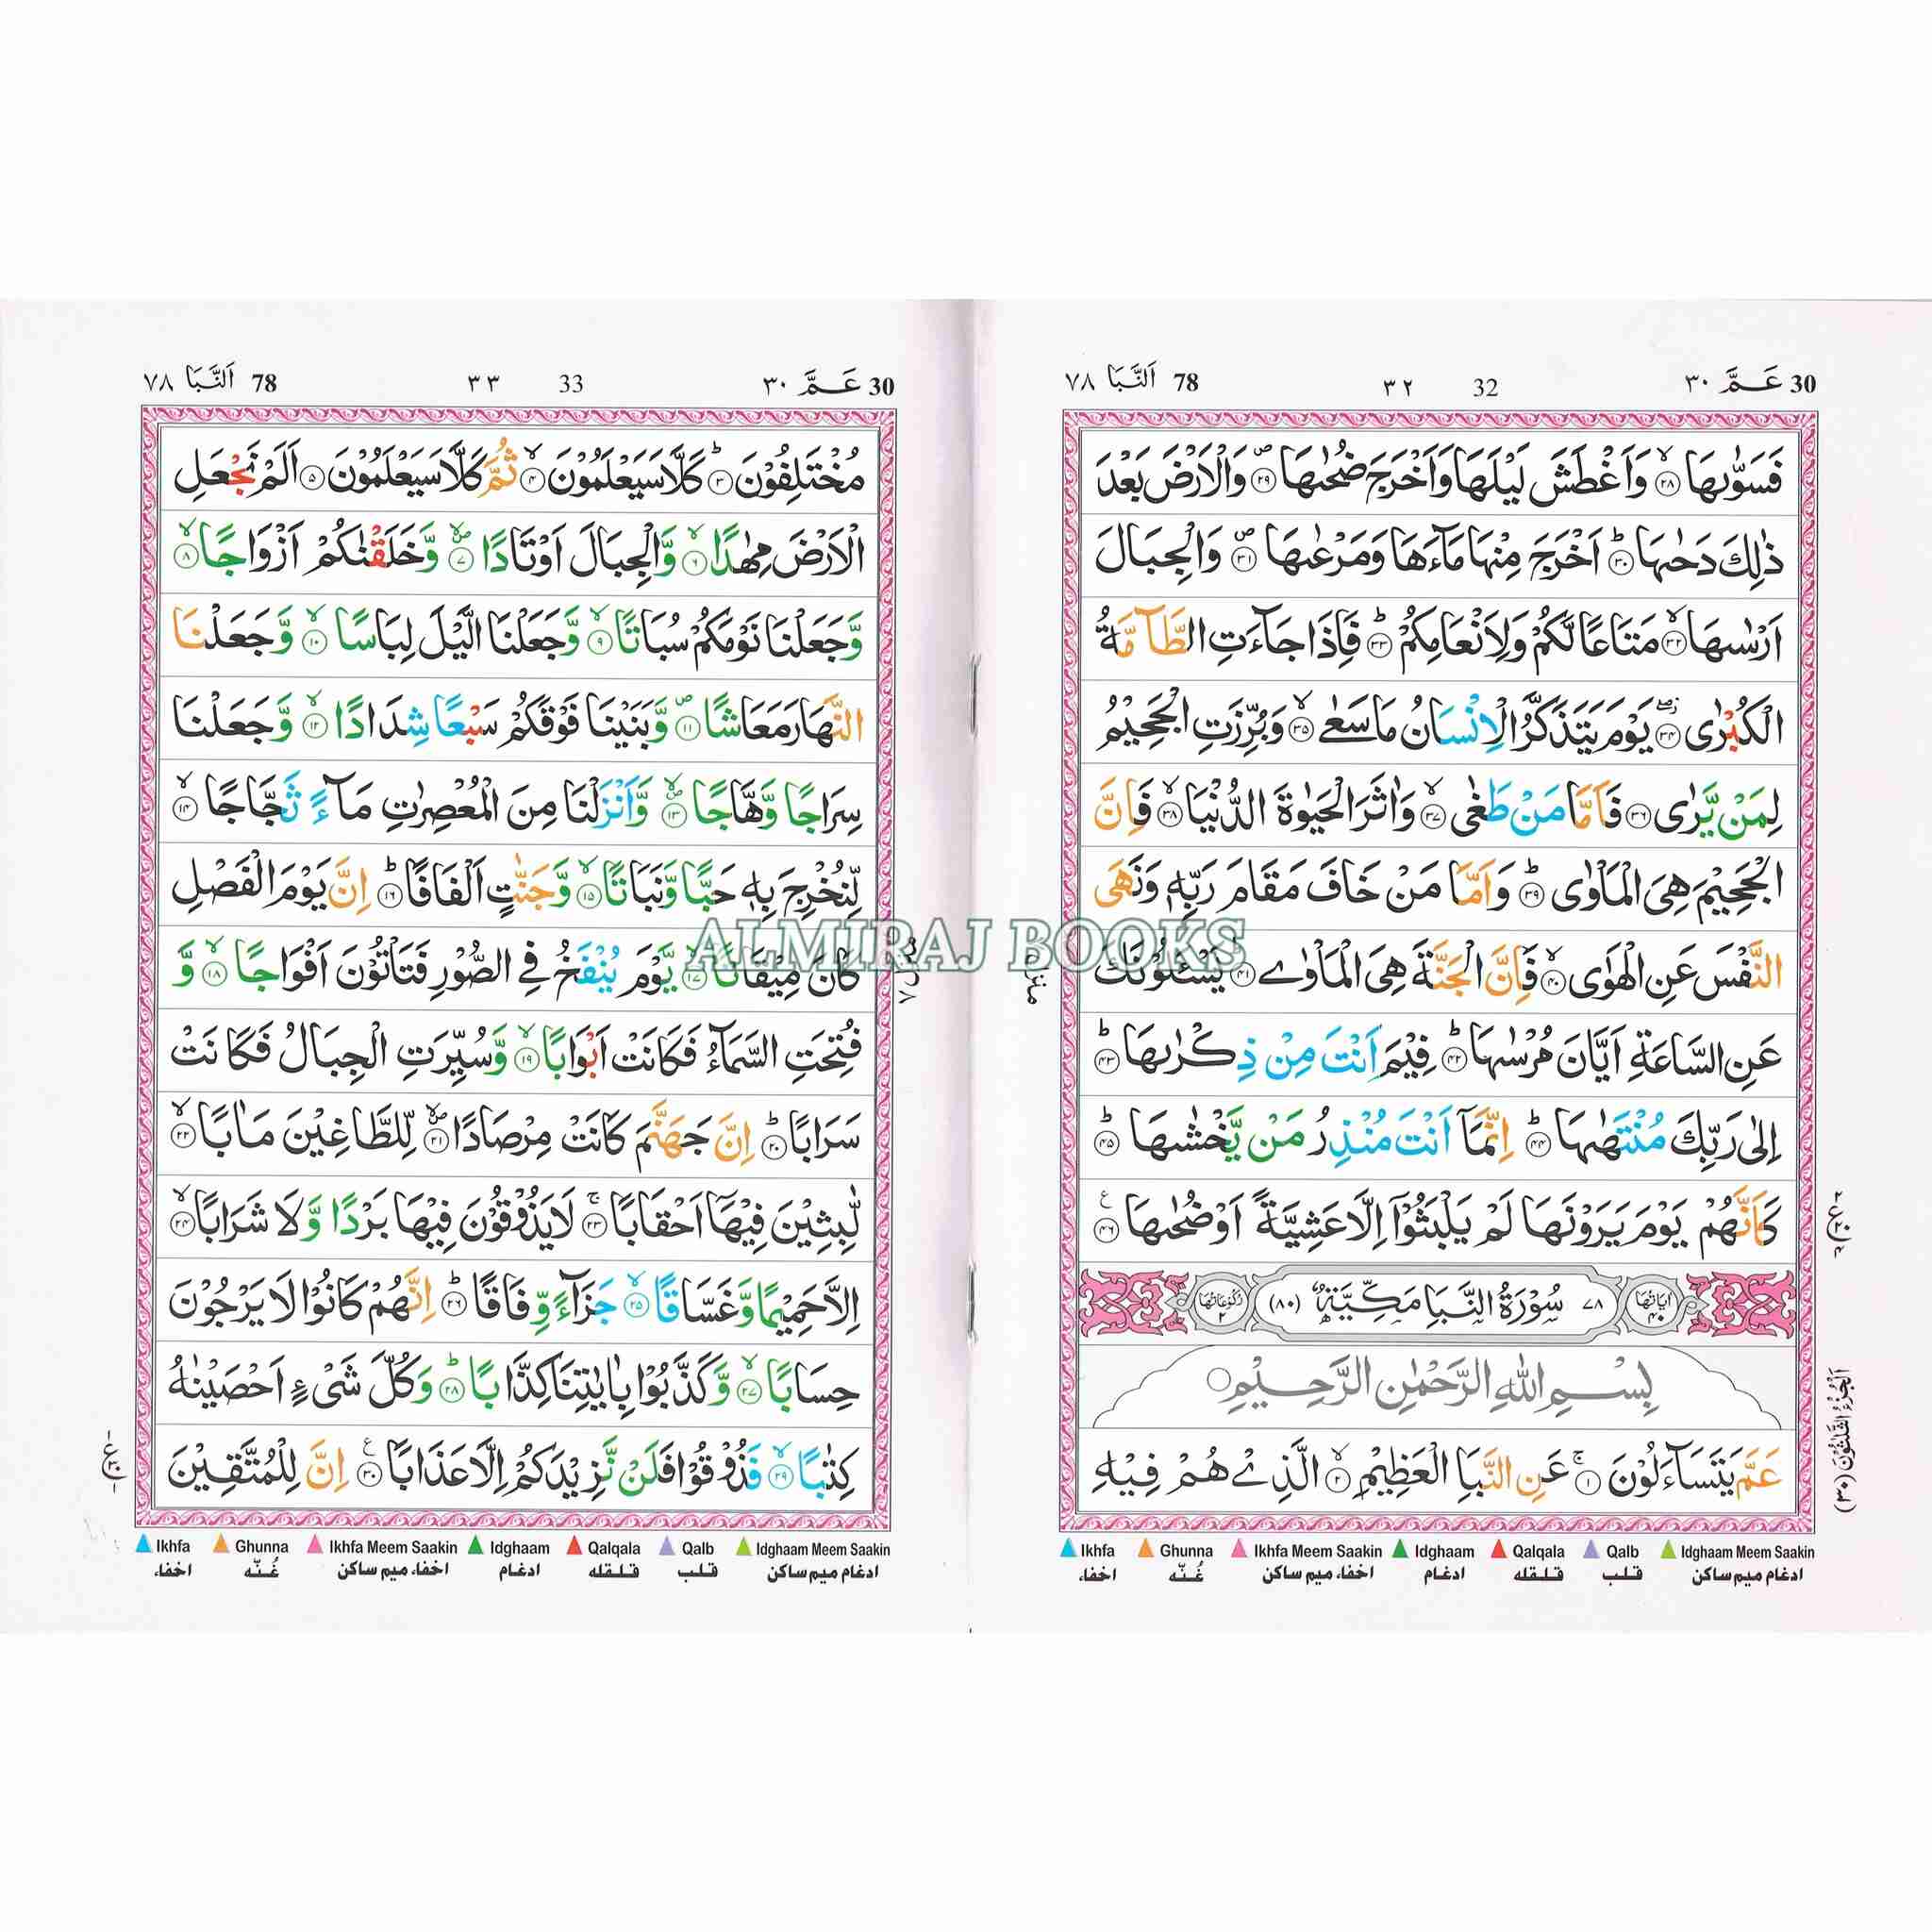 30 عَمَّ ٣٠ 32 ٣٢ 78 اَلنَّبَا ٧٨
فَسَوّٰىهَا ﴿٢٨﴾ وَاَغْطَشَ لَيْلَهَا وَاَخْرَجَ ضُحٰىهَا ﴿٢٩﴾ وَالْاَرْضَ بَعْدَ
ذٰلِكَ دَحٰىهَا ﴿٣٠﴾ اَخْرَجَ مِنْهَا مَآءَهَا وَمَرْعٰىهَا ﴿٣١﴾ وَالْجِبَالَ
اَرْسٰىهَا ﴿٣٢﴾ مَتَاعًا لَّكُمْ وَلِاَنْعَامِكُمْ ﴿٣٣﴾ فَاِذَا جَآءَتِ الطَّآمَّةُ
الْكُبْرٰى ﴿٣٤﴾ يَوْمَ يَتَذَكَّرُ الْاِنْسَانُ مَا سَعٰى ﴿٣٥﴾ وَبُرِّزَتِ الْجَحِيْمُ
لِمَنْ يَّرٰى ﴿٣٦﴾ فَاَمَّا مَنْ طَغٰى ﴿٣٧﴾ وَاٰثَرَ الْحَيٰوةَ الدُّنْيَا ﴿٣٨﴾ فَاِنَّ
الْجَحِيْمَ هِيَ الْمَاْوٰى ﴿٣٩﴾ وَاَمَّا مَنْ خَافَ مَقَامَ رَبِّهٖ وَنَهَى
النَّفْسَ عَنِ الْهَوٰى ﴿٤٠﴾ فَاِنَّ الْجَنَّةَ هِيَ الْمَاْوٰى ﴿٤١﴾ يَسْـَٔلُوْنَكَ
عَنِ السَّاعَةِ اَيَّانَ مُرْسٰىهَا ﴿٤٢﴾ فِيْمَ اَنْتَ مِنْ ذِكْرٰىهَا ﴿٤٣﴾
اِلٰى رَبِّكَ مُنْتَهٰىهَا ﴿٤٤﴾ اِنَّمَآ اَنْتَ مُنْذِرُ مَنْ يَّخْشٰىهَا ﴿٤٥﴾
كَاَنَّهُمْ يَوْمَ يَرَوْنَهَا لَمْ يَلْبَثُوْٓا اِلَّا عَشِيَّةً اَوْ ضُحٰىهَا ﴿٤٦﴾
اٰيَاتُهَا ٤٠ ٧٨ سُوْرَةُ النَّبَاِ مَكِّيَّةٌ (٨٠) رُكُوْعَاتُهَا ٢
بِسْمِ اللّٰهِ الرَّحْمٰنِ الرَّحِيْمِ
عَمَّ يَتَسَآءَلُوْنَ ﴿١﴾ عَنِ النَّبَاِ الْعَظِيْمِ ﴿٢﴾ الَّذِيْ هُمْ فِيْهِ
اَلْجُزْءُ الثَّلٰثُوْنَ (٣٠)
Ikhfa Ghunna Ikhfa Meem Saakin Idghaam Qalqala Qalb Idghaam Meem Saakin
اخفاء غُنّه اخفاء ميم ساكن ادغام قلقله قلب ادغام ميم ساكن
30 عَمَّ ٣٠ 33 ٣٣ 78 اَلنَّبَا ٧٨
مُخْتَلِفُوْنَ ﴿٣﴾ كَلَّا سَيَعْلَمُوْنَ ﴿٤﴾ ثُمَّ كَلَّا سَيَعْلَمُوْنَ ﴿٥﴾ اَلَمْ نَجْعَلِ
الْاَرْضَ مِهٰدًا ﴿٦﴾ وَّالْجِبَالَ اَوْتَادًا ﴿٧﴾ وَّخَلَقْنٰكُمْ اَزْوَاجًا ﴿٨﴾
وَّجَعَلْنَا نَوْمَكُمْ سُبَاتًا ﴿٩﴾ وَّجَعَلْنَا الَّيْلَ لِبَاسًا ﴿١٠﴾ وَّجَعَلْنَا
النَّهَارَ مَعَاشًا ﴿١١﴾ وَّبَنَيْنَا فَوْقَكُمْ سَبْعًا شِدَادًا ﴿١٢﴾ وَّجَعَلْنَا
سِرَاجًا وَّهَّاجًا ﴿١٣﴾ وَّاَنْزَلْنَا مِنَ الْمُعْصِرٰتِ مَآءً ثَجَّاجًا ﴿١٤﴾
لِّنُخْرِجَ بِهٖ حَبًّا وَّنَبَاتًا ﴿١٥﴾ وَّجَنّٰتٍ اَلْفَافًا ﴿١٦﴾ اِنَّ يَوْمَ الْفَصْلِ
كَانَ مِيْقَاتًا ﴿١٧﴾ يَّوْمَ يُنْفَخُ فِي الصُّوْرِ فَتَاْتُوْنَ اَفْوَاجًا ﴿١٨﴾ وَّ
فُتِحَتِ السَّمَآءُ فَكَانَتْ اَبْوَابًا ﴿١٩﴾ وَّسُيِّرَتِ الْجِبَالُ فَكَانَتْ
سَرَابًا ﴿٢٠﴾ اِنَّ جَهَنَّمَ كَانَتْ مِرْصَادًا ﴿٢١﴾ لِّلطَّاغِيْنَ مَاٰبًا ﴿٢٢﴾
لّٰبِثِيْنَ فِيْهَآ اَحْقَابًا ﴿٢٣﴾ لَا يَذُوْقُوْنَ فِيْهَا بَرْدًا وَّلَا شَرَابًا ﴿٢٤﴾
اِلَّا حَمِيْمًا وَّغَسَّاقًا ﴿٢٥﴾ جَزَآءً وِّفَاقًا ﴿٢٦﴾ اِنَّهُمْ كَانُوْا لَا يَرْجُوْنَ
حِسَابًا ﴿٢٧﴾ وَّكَذَّبُوْا بِاٰيٰتِنَا كِذَّابًا ﴿٢٨﴾ وَكُلَّ شَيْءٍ اَحْصَيْنٰهُ
كِتٰبًا ﴿٢٩﴾ فَذُوْقُوْا فَلَنْ نَّزِيْدَكُمْ اِلَّا عَذَابًا ﴿٣٠﴾ اِنَّ لِلْمُتَّقِيْنَ
Ikhfa Ghunna Ikhfa Meem Saakin Idghaam Qalqala Qalb Idghaam Meem Saakin
اخفاء غُنّه اخفاء ميم ساكن ادغام قلقله قلب ادغام ميم ساكن
ALMIRAJ BOOKS